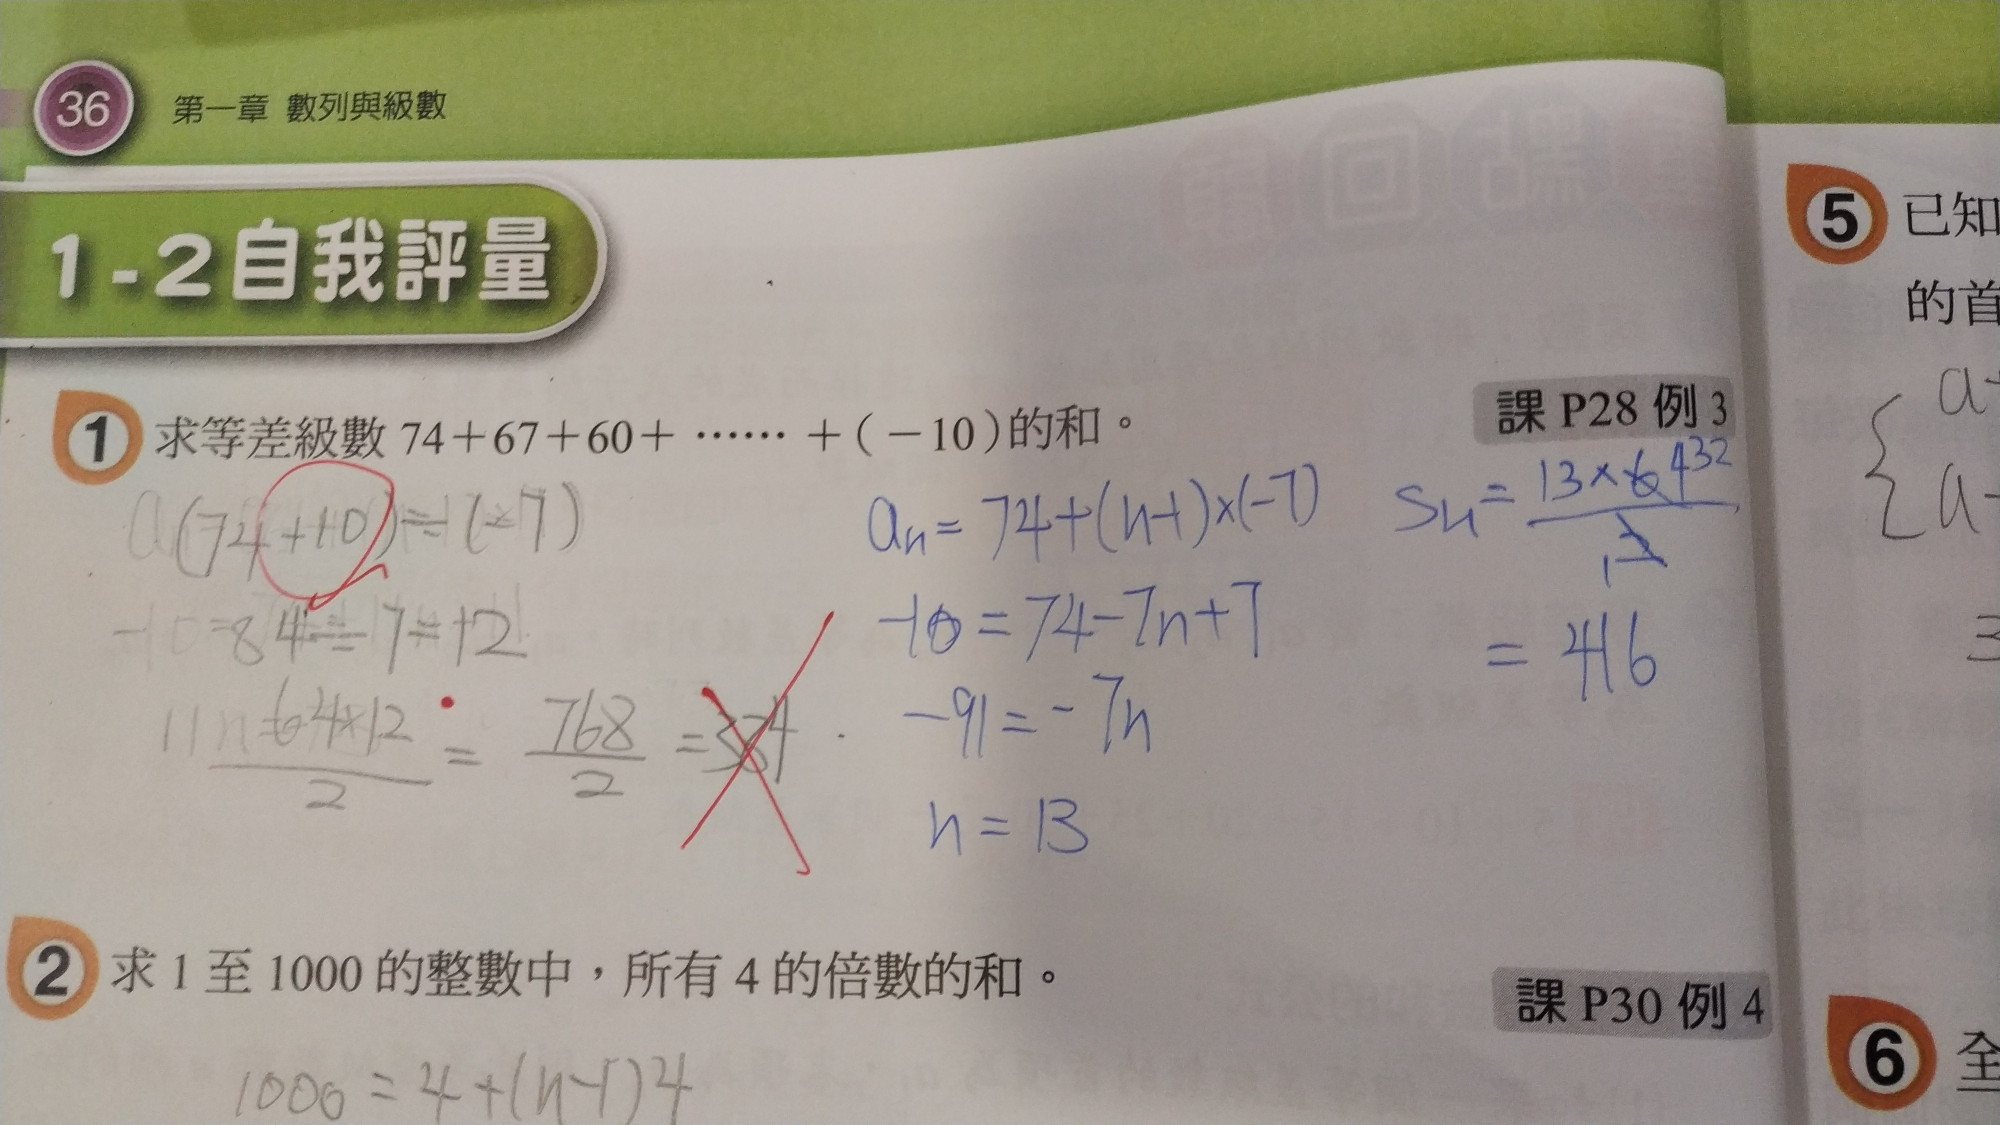 36 第一章 數列與級數
1-2自我評量
1 求等差級數 74+67+60+ …… +(-10)的和。
課 P28 例 3
(74+10)÷(-7)
84÷7=12
64×12
2
= 768
2
=384
aₙ= 74+(n-1)×(-7)
-10=74-7n+7
-91=-7n
n=13
Sₙ= 13×64 32
1 2
= 416
2 求 1 至 1000 的整數中,所有 4 的倍數的和。
課 P30 例 4
1000=4+(n-1)4
5 已知
的首
a+
a-
3
6 全